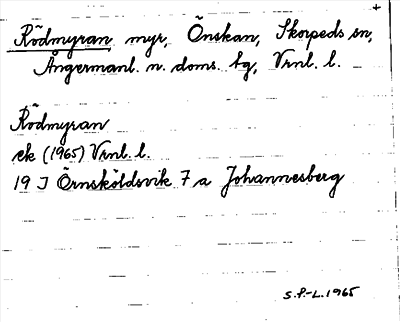 Rödmyran myr, Önskan, Skorpeds sn,
Ångermanl. n. doms. tg, Vrnl. l.
Rödmyran
ek (1965) Vrnl. l.
19 J Örnsköldsvik 7 a Johannesberg
S.P.-L. 1965